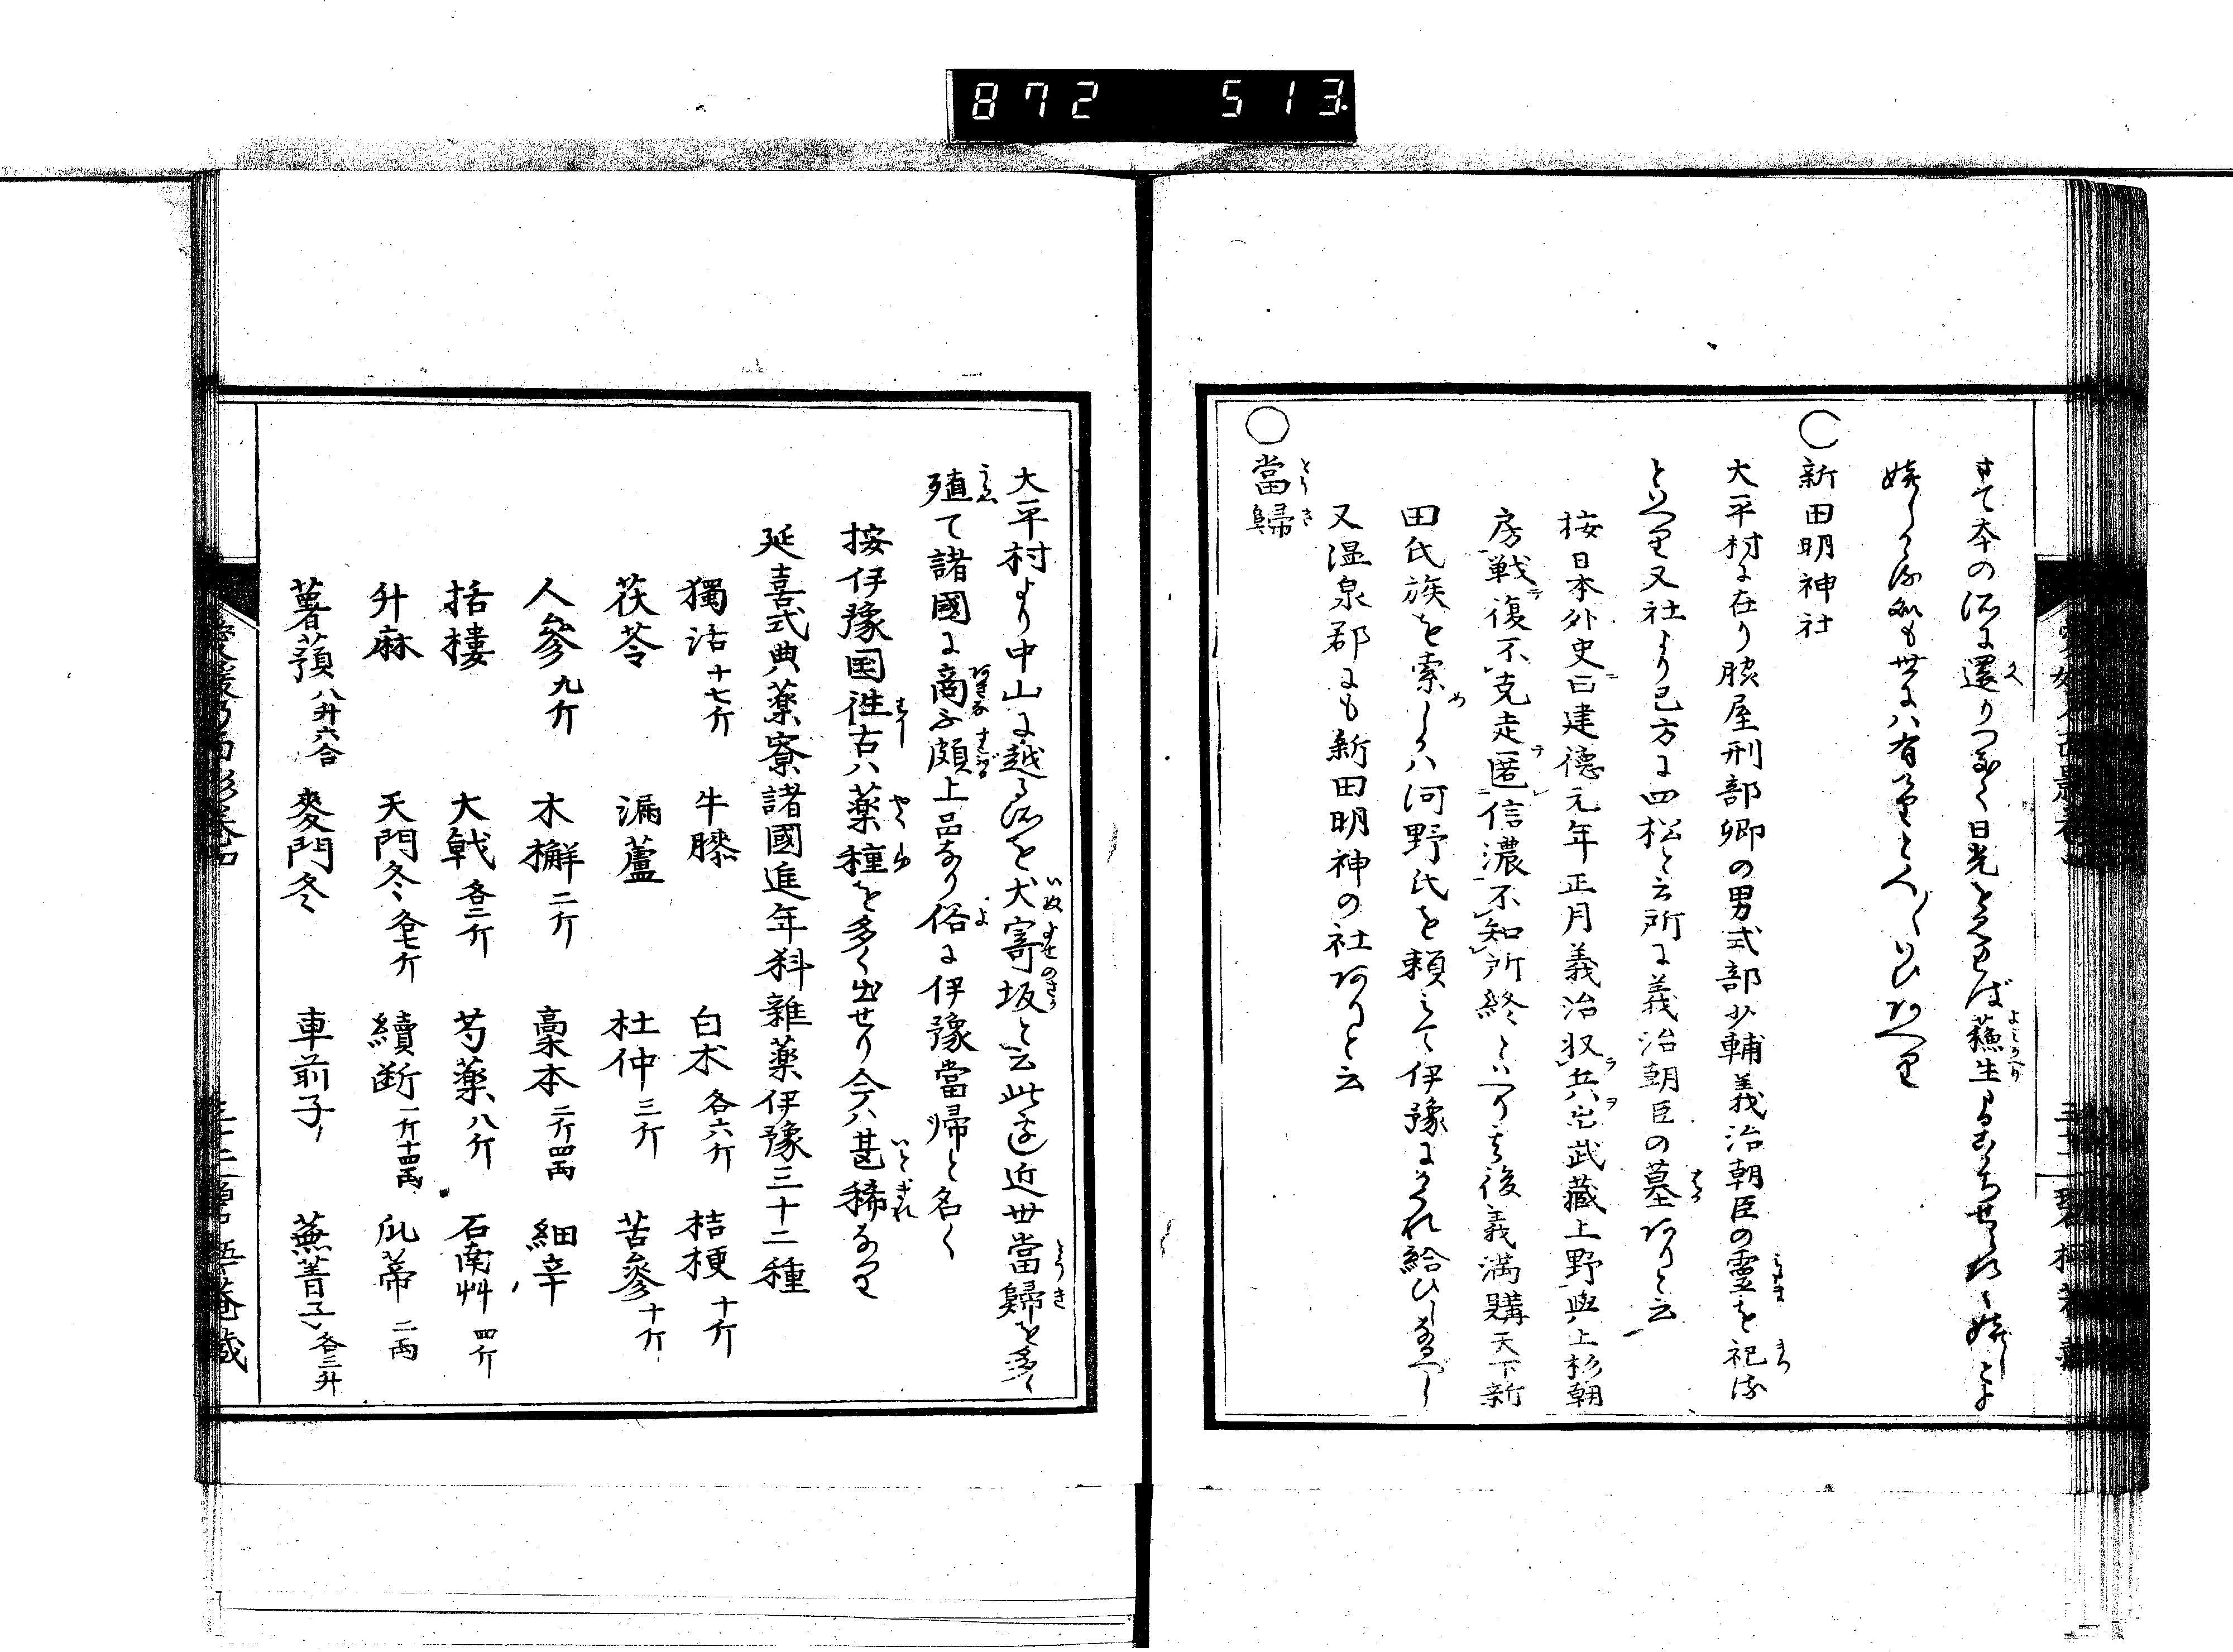 872 513
まて本の所に還りつきて日光をみれば蘇生るこゝちせられ嬉しとよ
○新田明神社
大平村に在り脇屋刑部卿の男式部少輔義治朝臣の霊を祀る
といへり又社より巳方に四松と云所に義治朝臣の墓ありと云
按日本外史ニ曰建徳元年正月義治収兵出武藏上野與上杉朝
房戦復不克走匿信濃不知所終といへり其後義満購天下新
田氏族を索めしかハ河野氏を頼みて伊豫にかくれ給ひしなるべし
又温泉郡にも新田明神の社ありと云
○當歸
大平村より中山に越る所を犬寄坂と云此邊近世當歸を多く
殖て諸國に商ふ頗上品なり俗に伊豫當帰と名く
按伊豫国徃古ハ薬種を多く出せり今ハ甚稀なり
延喜式典薬寮諸國進年料雜薬伊豫三十二種
獨活十七斤 牛膝 白朮各六斤 桔梗十斤
茯苓 漏蘆 杜仲三斤 苦參十斤
人參九斤 木檞二斤 藁本二斤四両 細辛
括樓 大戟各二斤 芍薬八斤 石南艸四斤
升麻 天門冬各七斤 續断一斤十四両 瓜蒂二両
薯蕷八升六合 麥門冬 車前子 蕪菁子各三升